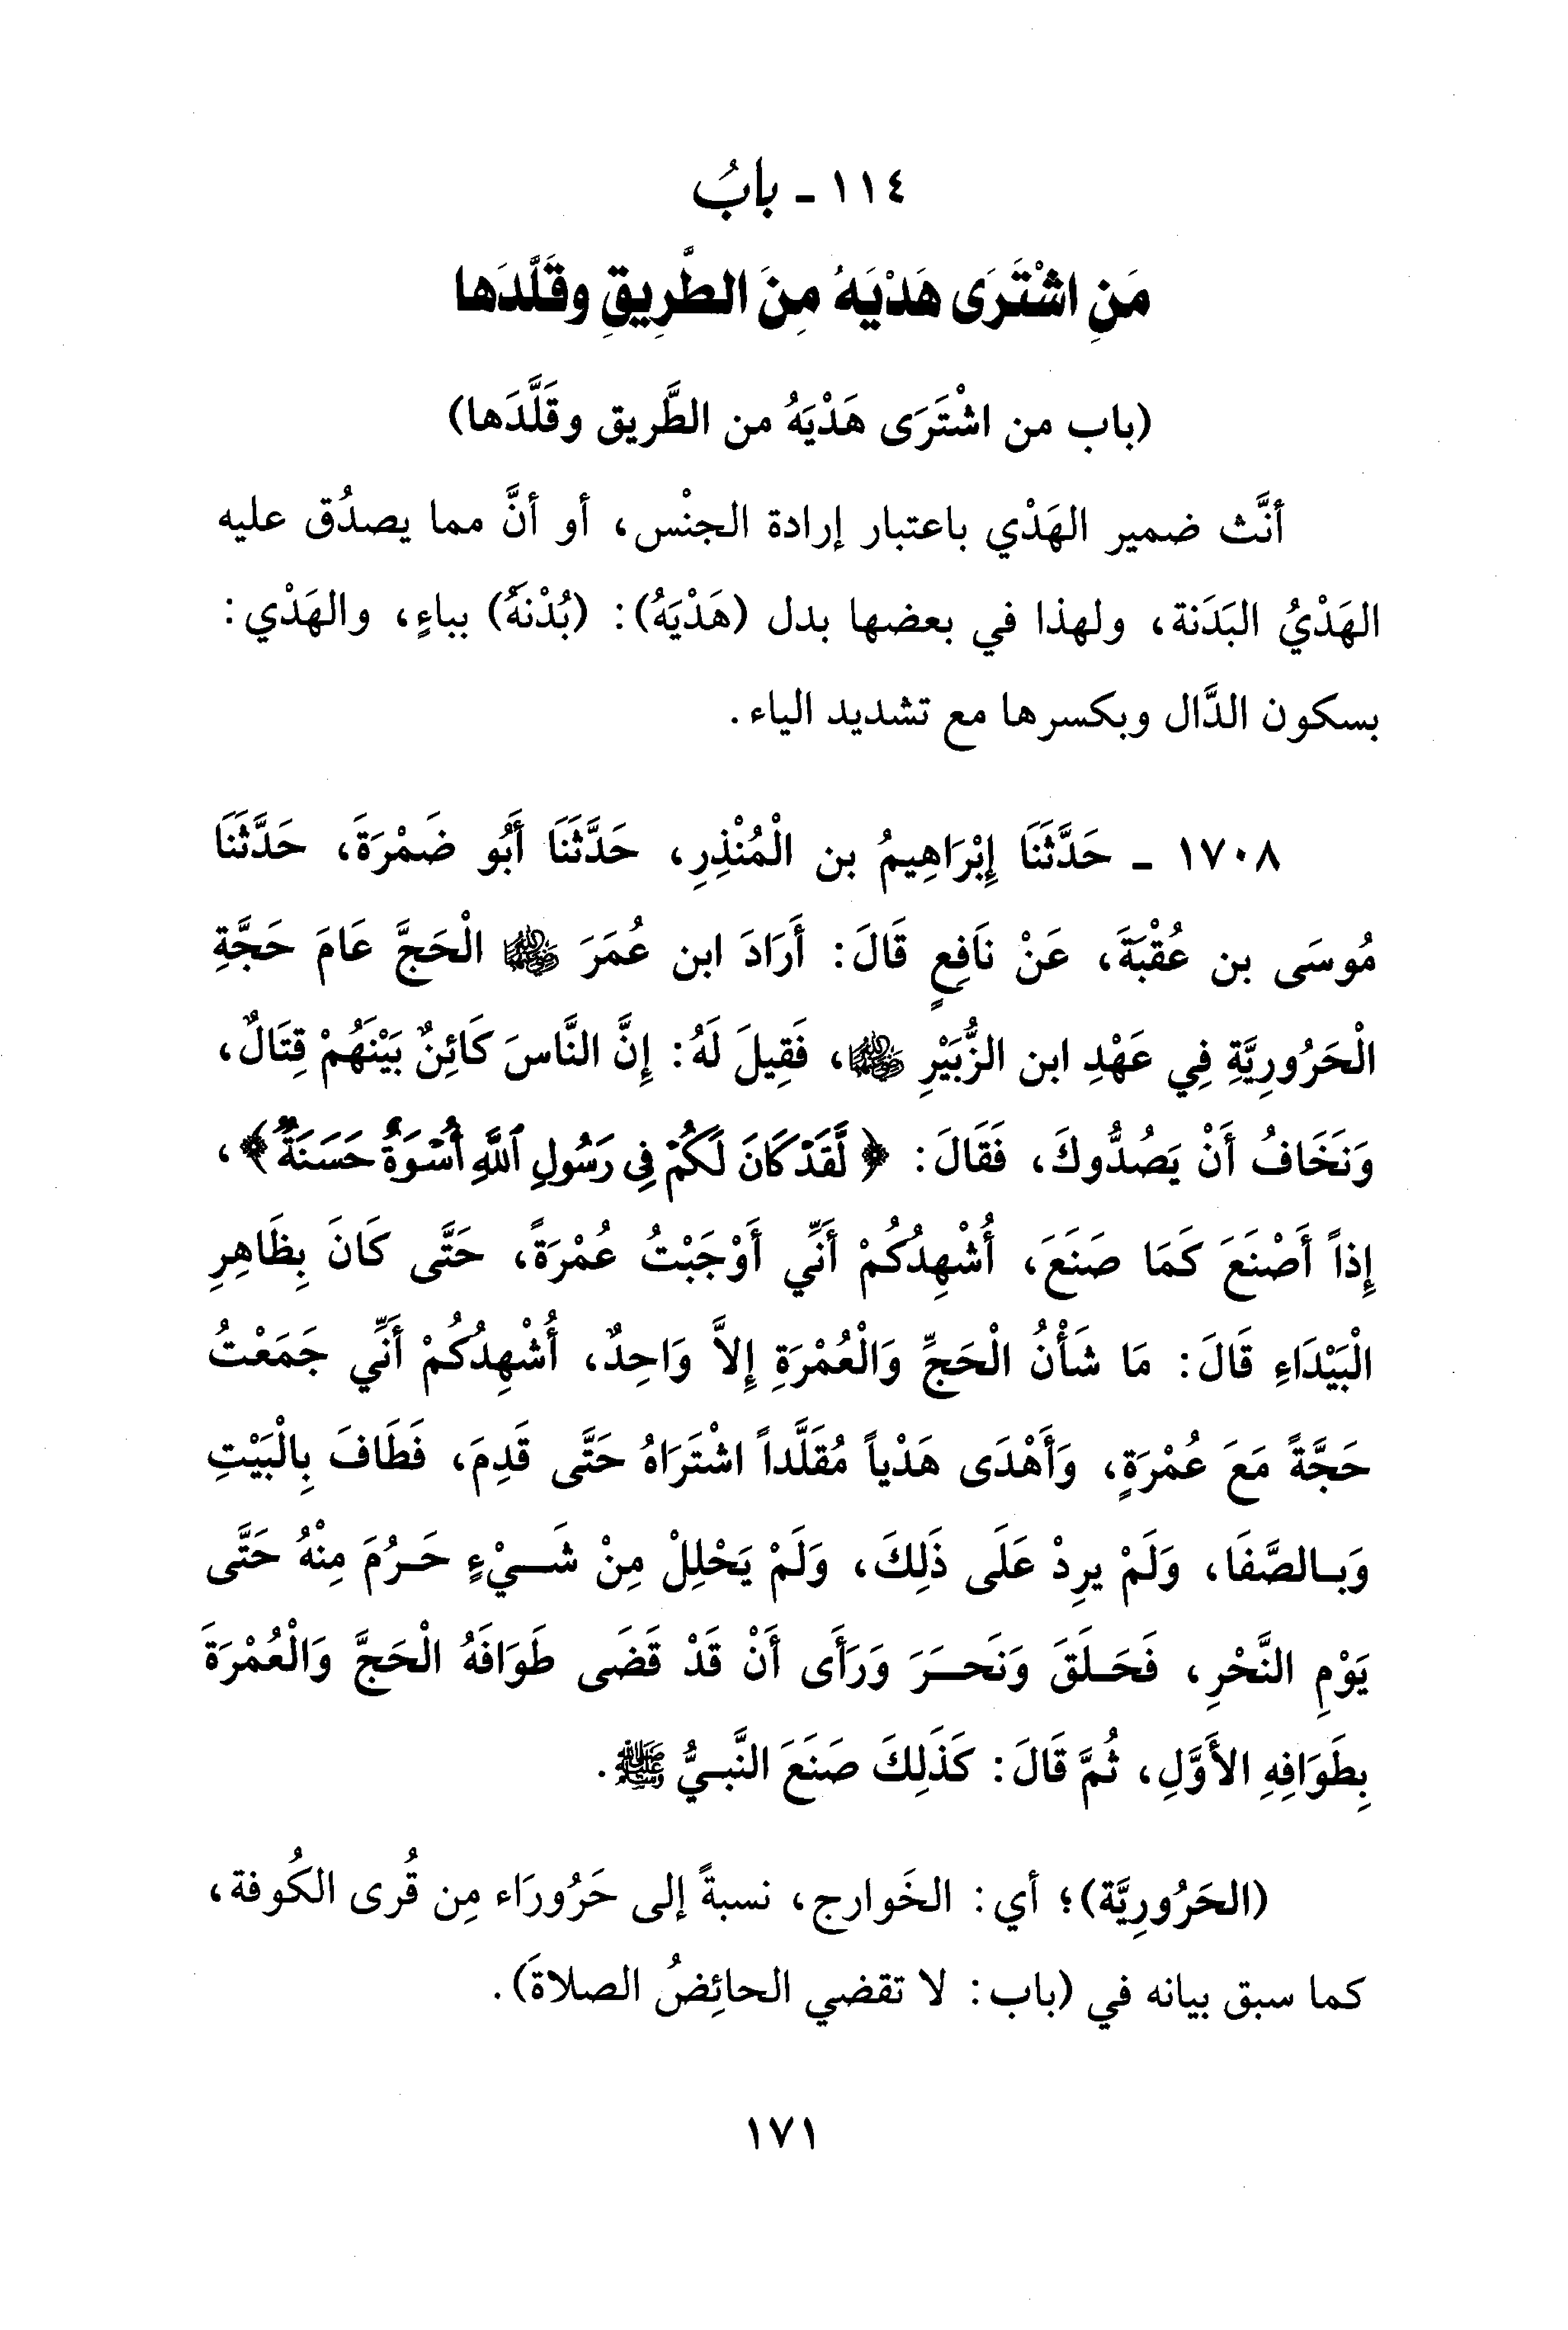 ١١٤ - بابُ
مَنِ اشْتَرَى هَدْيَهُ مِنَ الطَّرِيقِ وقَلَّدَها
(باب من اشْتَرَى هَدْيَهُ من الطَّريق وقَلَّدَها)
أنَّث ضمير الهَدْي باعتبار إرادة الجنْس، أو أنَّ مما يصدُق عليه
الهَدْيُ البَدَنة، ولهذا في بعضها بدل (هَدْيَهُ): (بُدْنهُ) بباءٍ، والهَدْي:
بسكون الدَّال وبكسرها مع تشديد الياء.
١٧٠٨ - حَدَّثَنَا إِبْرَاهِيمُ بن الْمُنْذِرِ، حَدَّثَنَا أَبُو ضَمْرَةَ، حَدَّثَنَا
مُوسَى بن عُقْبَةَ، عَنْ نَافِعٍ قَالَ: أَرَادَ ابن عُمَرَ ﵄ الْحَجَّ عَامَ حَجَّةِ
الْحَرُورِيَّةِ فِي عَهْدِ ابن الزُّبَيْرِ ﵄، فَقِيلَ لَهُ: إِنَّ النَّاسَ كَائِنٌ بَيْنَهُمْ قِتَالٌ،
وَنَخَافُ أَنْ يَصُدُّوكَ، فَقَالَ: ﴿لَّقَدْ كَانَ لَكُمْ فِي رَسُولِ ٱللَّهِ أُسْوَةٌ حَسَنَةٌ﴾،
إِذاً أَصْنَعَ كَمَا صَنَعَ، أُشْهِدُكُمْ أَنِّي أَوْجَبْتُ عُمْرَةً، حَتَّى كَانَ بِظَاهِرِ
الْبَيْدَاءِ قَالَ: مَا شَأْنُ الْحَجِّ وَالْعُمْرَةِ إِلاَّ وَاحِدٌ، أُشْهِدُكُمْ أَنِّي جَمَعْتُ
حَجَّةً مَعَ عُمْرَةٍ، وَأَهْدَى هَدْياً مُقَلَّداً اشْتَرَاهُ حَتَّى قَدِمَ، فَطَافَ بِالْبَيْتِ
وَبـالصَّفَا، وَلَمْ يرِدْ عَلَى ذَلِكَ، وَلَمْ يَحْلِلْ مِنْ شَـيْءٍ حَـرُمَ مِنْهُ حَتَّى
يَوْمِ النَّحْرِ، فَحَـلَقَ وَنَحـرَ وَرَأَى أَنْ قَدْ قَضَى طَوَافَهُ الْحَجَّ وَالْعُمْرَةَ
بِطَوَافِهِ الأَوَّلِ، ثُمَّ قَالَ: كَذَلِكَ صَنَعَ النَّبـيُّ ﷺ.
(الحَرُورِيَّة)؛ أي: الخَوارج، نسبةً إلى حَرُورَاء مِن قُرى الكُوفة،
كما سبق بيانه في (باب: لا تقضي الحائِضُ الصلاةَ).
١٧١